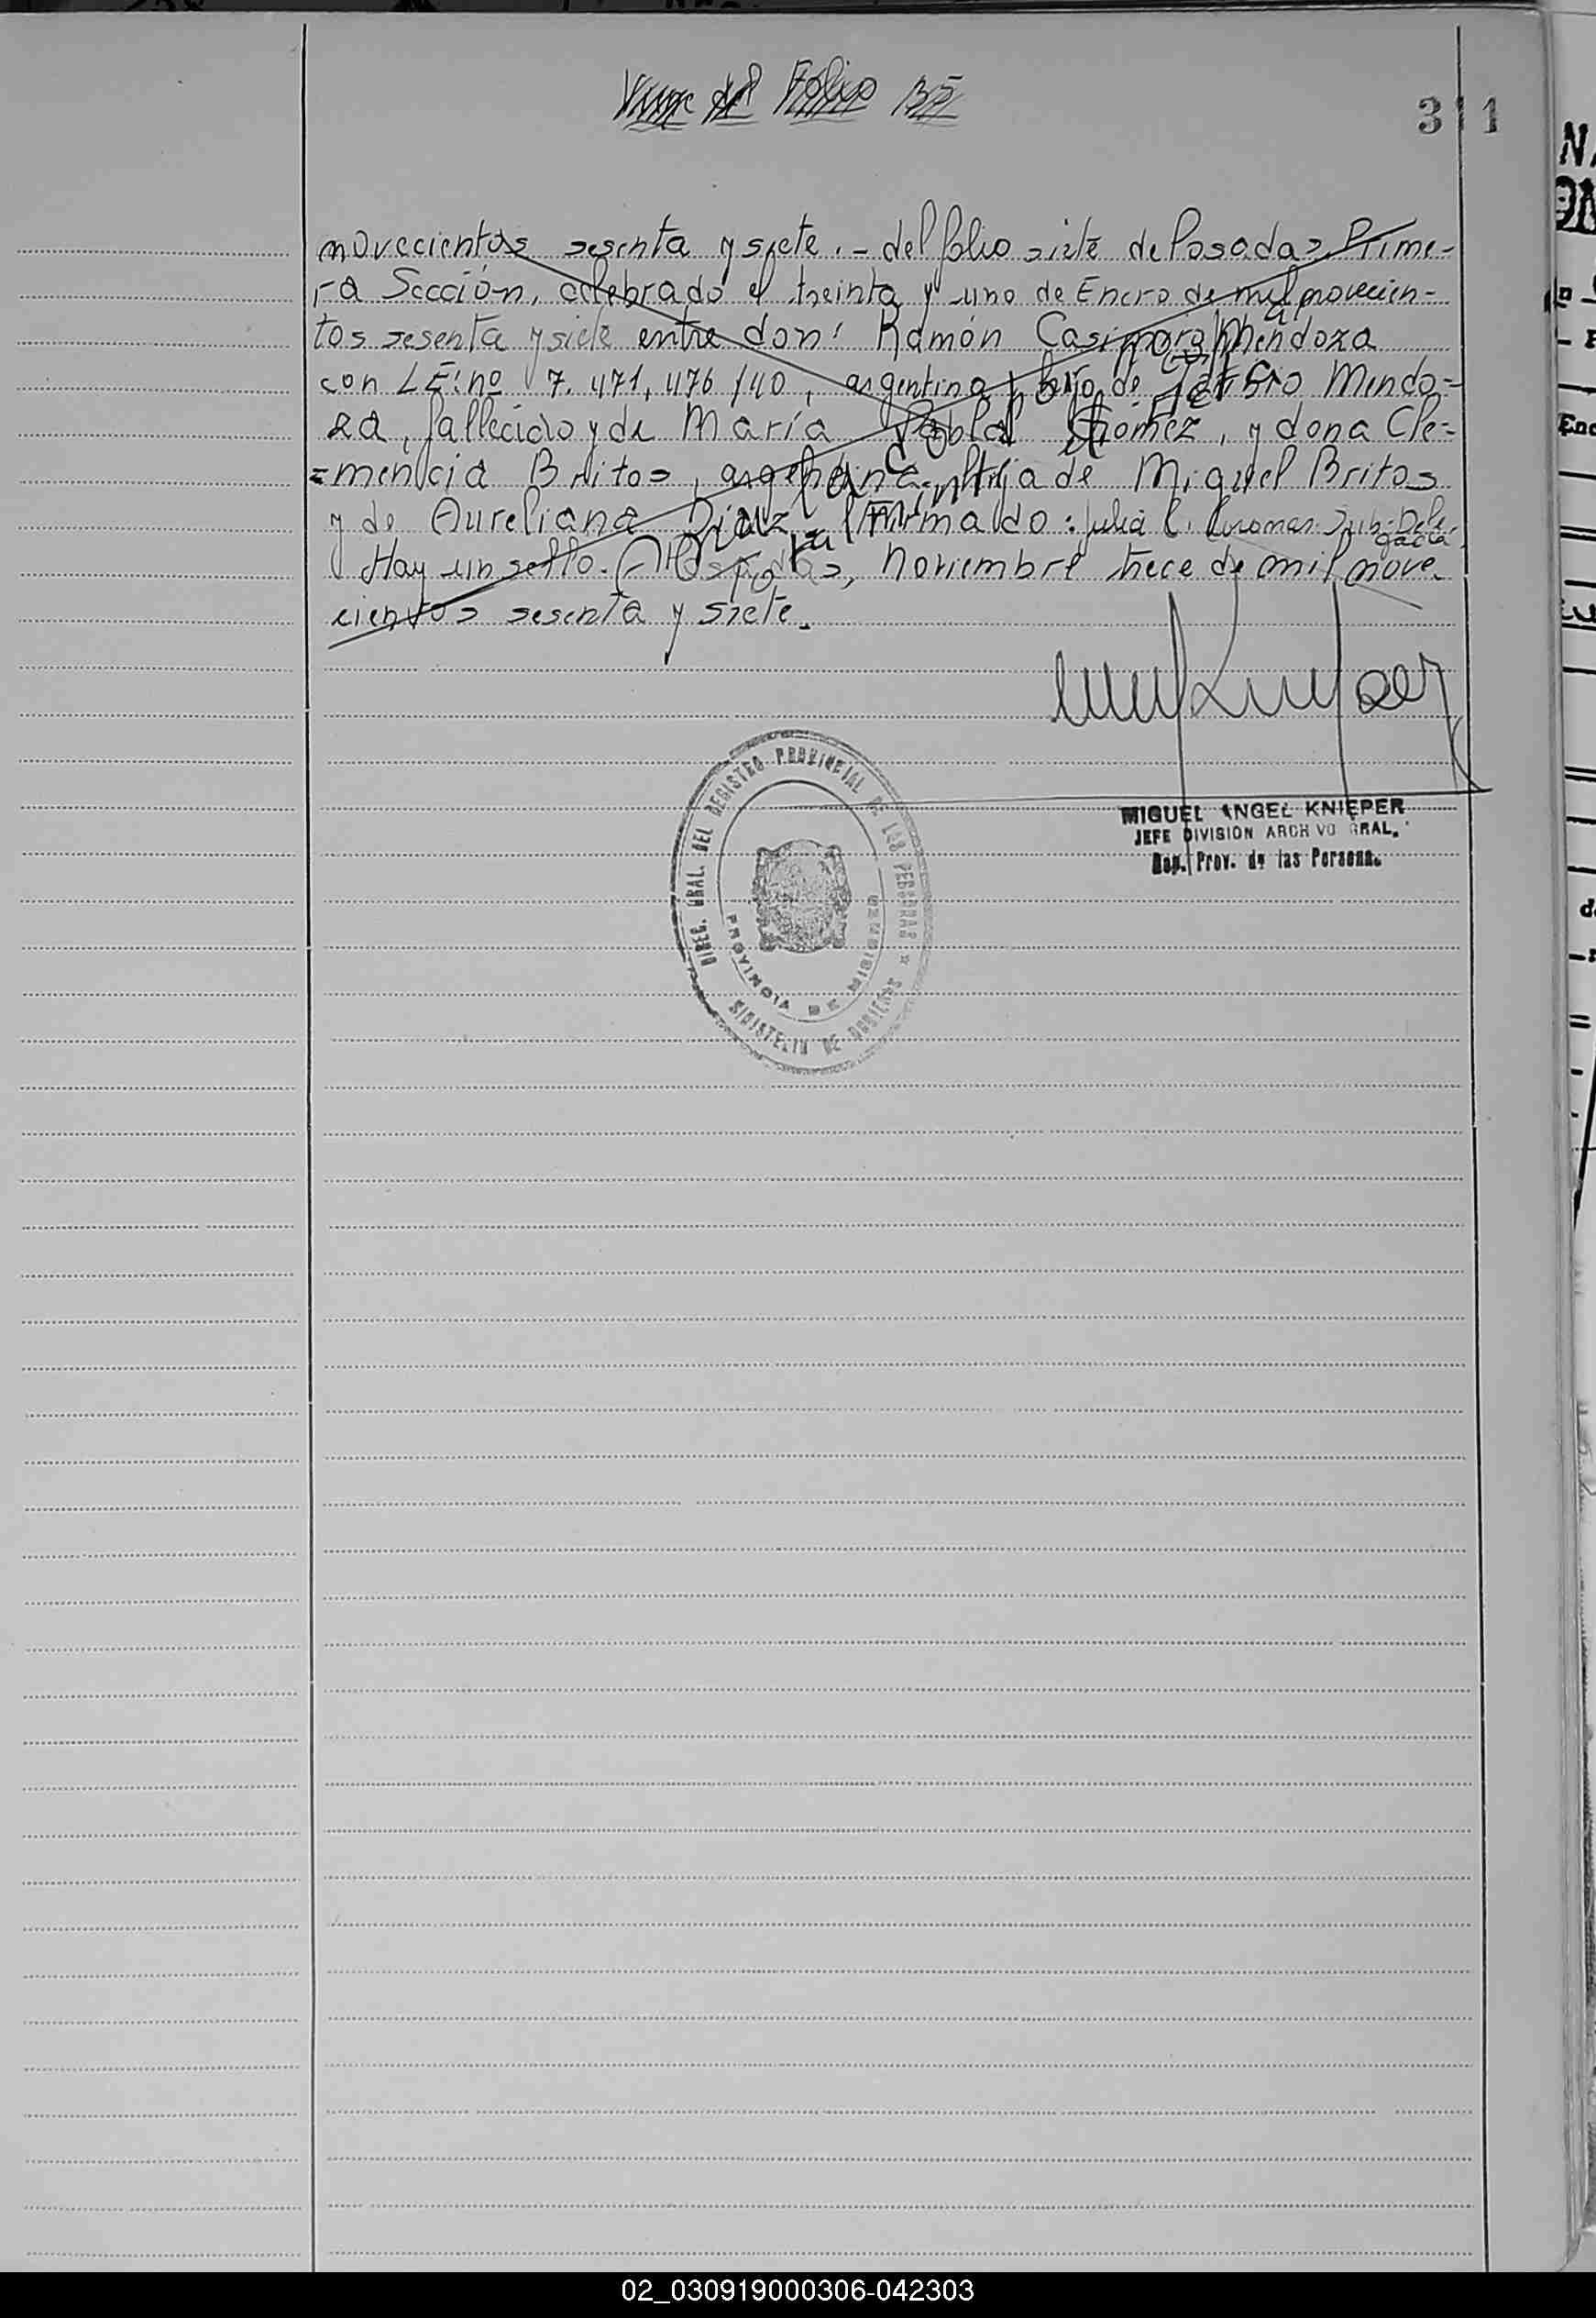 Viene del Folio 35
311
novecientos sesenta y siete.- del folio siete de Posadas, Prime-
ra Sección, celebrado el treinta y uno de Enero de mil novecien-
tos sesenta y siete entre don: Ramón Casimiro Mendoza
con LE: nº 7.471.476/40, argentino, hijo de Mendo=
za, fallecido y de María Pabla Gómez, y doña Cle=
=mencia Britos, argentina, hija de Miguel Britos
y de Aureliana Diaz. Firmado: Julia C. Sub-Dele-
gada
Hay un sello.- Posadas, noviembre trece de mil nove-
cientos sesenta y siete.
Anulada
MIGUEL ANGEL KNIEPER
JEFE DIVISION ARCHIVO GRAL.
Rep. Prov. de las Persona.
DIREC. GRAL. DEL REGISTRO PROVINCIAL DE LAS PERSONAS
PROVINCIA DE MISIONES
02_030919000306-042303